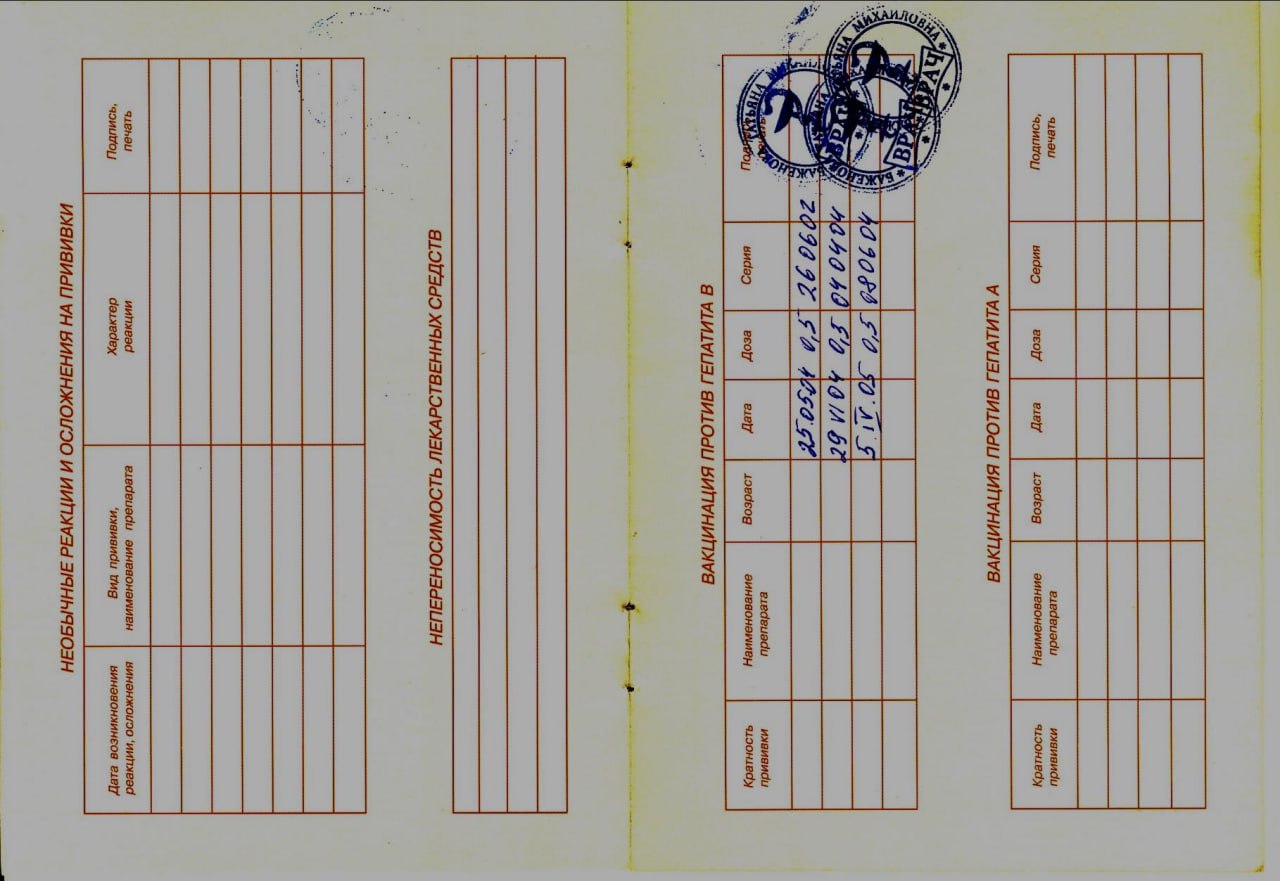 НЕОБЫЧНЫЕ РЕАКЦИИ И ОСЛОЖНЕНИЯ НА ПРИВИВКИ
Дата возникновения реакции, осложнения
Вид прививки, наименование препарата
Характер реакции
Подпись, печать
НЕПЕРЕНОСИМОСТЬ ЛЕКАРСТВЕННЫХ СРЕДСТВ
ВАКЦИНАЦИЯ ПРОТИВ ГЕПАТИТА В
Кратность прививки
Наименование препарата
Возраст
Дата
Доза
Серия
25.05.04 0,5 260602
29 VI 04 0,5 040404
5.IV.05 0,5 080604
ТАТЬЯНА МИХАЙЛОВНА
ВРАЧ
БАЖЕНОВА
ВРАЧ
МИХАИЛОВНА
ВРАЧ
ВАКЦИНАЦИЯ ПРОТИВ ГЕПАТИТА А
Кратность прививки
Наименование препарата
Возраст
Дата
Доза
Серия
Подпись, печать